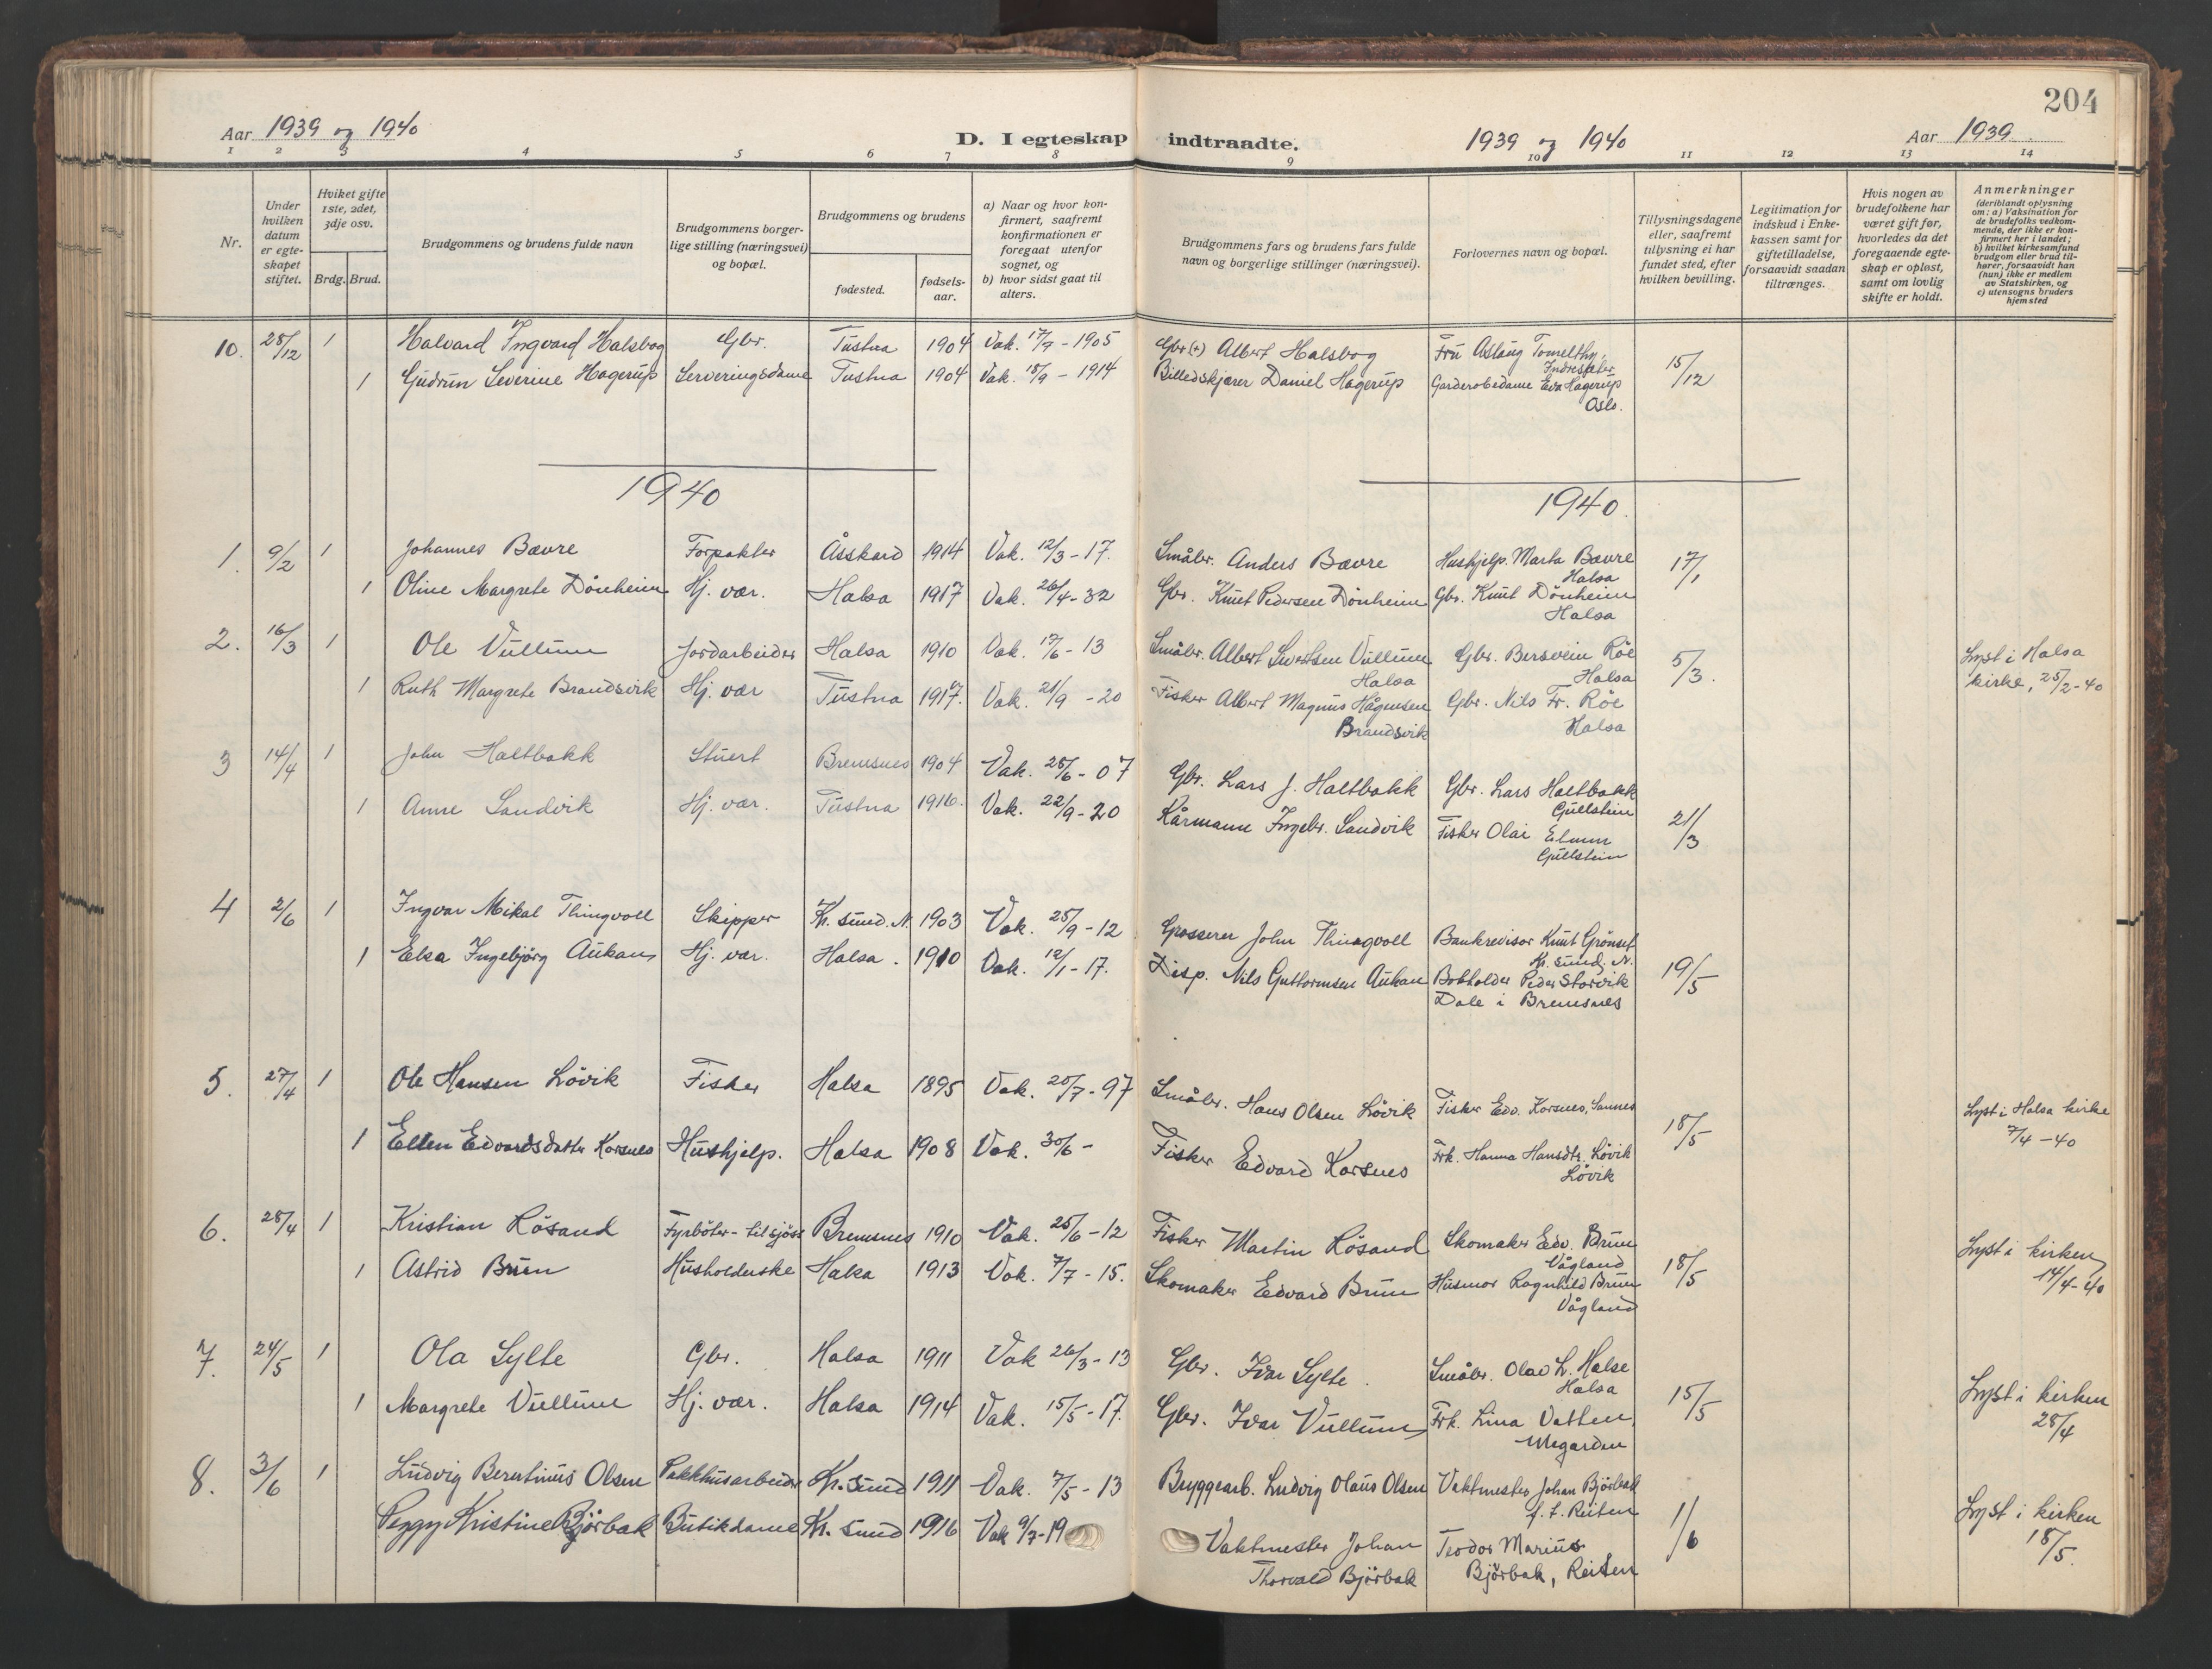 204
Aar 1939 og 1940
D. I egteskap indtraadte.
1939 og 1940
Aar 1939.
1 2 3 4 5 6 7 8 9 10 11 12 13 14
Nr.
Under hvilken datum er egte- skapet stiftet.
Hviket gifte 1ste, 2det, 3dje osv.
Brdg. Brud.
Brudgommens og brudens fulde navn
Brudgommens borger- lige stilling (næringsvei) og bopæl.
Brudgommens og brudens
fødested.
fødsels- aar.
a) Naar og hvor kon- firmert, saafremt konfirmationen er foregaat utenfor sognet, og
b) hvor sidst gaat til alters.
Brudgommens fars og brudens fars fulde navn og borgerlige stillinger (næringsvei).
Forlovernes navn og bopæl.
Tillysningsdagene eller, saafremt tillysning ei har fundet sted, efter hvilken bevilling.
Legitimation for indskud i Enke- kassen samt for giftetilladelse, forsaavidt saadan tiltrænges.
Hvis nogen av brudefolkene har været gift før, hvorledes da det foregaaende egte- skap er opløst, samt om lovlig skifte er holdt.
Anmerkninger (deriblandt oplysning om: a) Vaksination for de brudefolks vedkom- mende, der ikke er kon- firmert her i landet; b) hvilket kirkesamfund brudgom eller brud til- hører, forsaavidt han (hun) ikke er medlem av Statskirken, og c) utensogns bruders hjemsted
10. 28/12 1 Halvard Ingvard Halsbog Gbr. Tustna 1904 Vak. 17/9 - 1905 Gbr (+) Albert Halsbog Fru Aslaug Tomelthy, 15/12
Indresæter
1 Gudrun Severine Hagerup Serveringsdame Tustna 1904 Vak. 18/9 - 1914 Billedskjærer Daniel Hagerup Garderobedame Eva Hagerup
Oslo.
1940 1940.
1. 9/2 1 Johannes Bævre Forpakter Åsskard 1914 Vak. 12/3 - 17. Småbr. Anders Bævre Hushjelp. Marta Bævre 17/1
Halsa
1 Oline Margrete Dönheim Hj. vær. Halsa 1917 Vak. 26/4 - 32 Gbr. Knut Pedersen Dönheim Gbr. Knut Dönheim
Halsa
2. 16/3 1 Ole Vullum Jordarbeider Halsa 1910 Vak. 17/6 - 13 Småbr. Albert Sivertsen Vullum Gbr. Bersvein Röe 5/3. Lyst i Halsa
Halsa Halsa kirke, 25/2-40
1 Ruth Margrete Brandsvik Hj. vær Tustna 1917. Vak. 21/9 - 20 Fisker Albert Magnus Hågensen Gbr. Nils Fr. Röe
Brandsvik Halsa
3 14/4 1 John Holtbakk Stuert Bremsnes 1904 Vak. 28/6 - 07 Gbr. Lars J. Holtbakk Gbr. Lars Holtbakk 21/3
Gullstein
1 Anne Sandvik Hj. vær. Tustna 1916. Vak. 22/9 - 20 Kårmann Ingebr. Sandvik Fisker Olai
Gullstein
4 2/6 1 Ingvar Mikal Thingvoll Skipper Kr. sund. N. 1903 Vak. 25/9 - 12 Grosserer John Thingvoll Bankrevisor Knut Grönset 19/5
Kr. sund. N.
1 Elsa Ingebjörg Aukan Hj. vær. Halsa. 1910 Vak. 12/1 - 17. Disp. Nils Guttormsen Aukan Bokholder Peder Storvik
Dale i Bremsnes
5. 27/4 1 Ole Hansen Lövik Fisker Halsa 1895 Vak. 20/7 - 97 Småbr. Hans Olsen Lövik Fisker Edv. Korsnes, Sannes 18/5 Lyst i Halsa kirke
7/4 - 40
1 Ellen Edvardsdatter Korsnes Hushjelp. Halsa 1908 Vak. 30/6 - Fisker Edvard Korsnes Frk. Hanna Hansdtr. Lövik
Lövik
6. 28/4 1 Kristian Rösand Fyrböter - til sjöss Bremsnes 1910 Vak. 25/6 - 12 Fisker Martin Rösand Skomaker Edv. Brun 18/5 Lyst i kirken
Vågland 14/4-40
1 Astrid Brun Husholderske Halsa 1913 Vak. 7/7 - 15. Skomaker Edvard Brun Husmor Ragnhild Brun
Vågland
7. 24/5 1 Ola Sylte Gbr. Halsa 1911 Vak 26/3 - 13 Gbr. Ivar Sylte. Småbr. Olav L. Halse 15/5 Lyst i kirken
Halsa 28/4
1 Margrete Vullum Hj. vær. Halsa 1914 Vak. 15/5 - 17. Gbr. Ivar Vullum Frk. Lina Vatten
Megarden
8. 3/6 1 Ludvig Berntinus Olsen Pakkhusarbeider Kr. sund 1911 Vak. 7/5 - 13 Bryggearb. Ludvig Olaus Olsen Vaktmester Johan Björbak 1/6 Lyst i kirken
f. t. Reiten 18/5.
Peggy Kristine Björbak Butikdame Kr. sund 1916 Vak 9/7-19 Vaktmester Johan Teodor Marius
Thorvald Björbak Björbak, Reiten